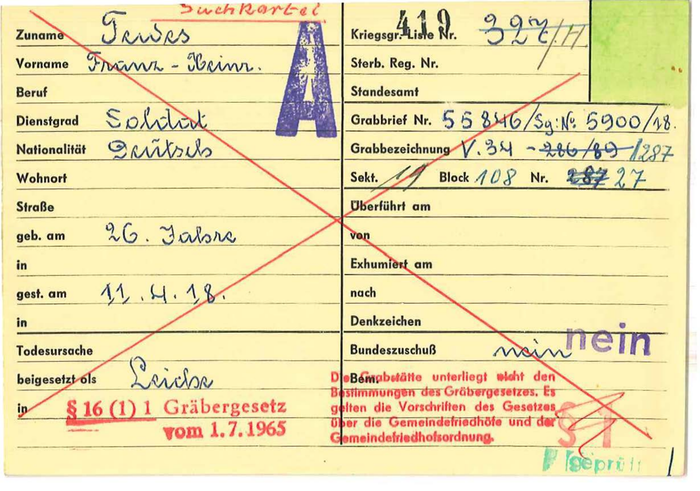 Suchkartei
Zuname Tewes
Vorname Franz-Heinr.
Beruf
Dienstgrad Soldat
Nationalität Deutsch
Wohnort
Straße
geb. am 26. Jahre
in
gest. am 11.4.18.
in
Todesursache
beigesetzt als Leiche
in
§ 16 (1) 1 Gräbergesetz
vom 1.7.1965
A
419
Kriegsgr.-Liste Nr. 327/
Sterb. Reg. Nr.
Standesamt
Grabbrief Nr. 55846/Sg:No 5900/18.
Grabbezeichnung V.34 - 286/89 /287
Sekt. 19 Block 108 Nr. 287 27
Überführt am
von
Exhumiert am
nach
Denkzeichen
nein
Bundeszuschuß nein
Bem.
Die Grabstätte unterliegt nicht den
Bestimmungen des Gräbergesetzes. Es
gelten die Vorschriften des Gesetzes
über die Gemeindefriedhöfe und der
Gemeindefriedhofsordnung.
§ 1
geprüft